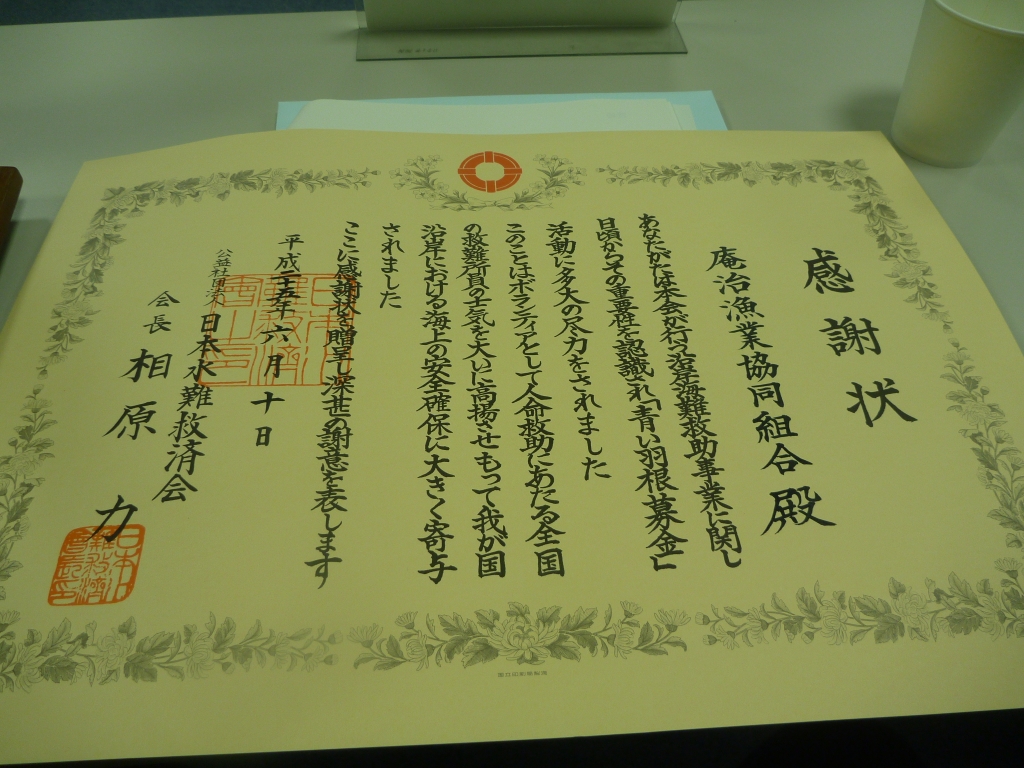 感謝状
庵治漁業協同組合殿
あなたがたは本会が行う沿岸海難救助事業に関し
日頃からその重要性を認識され「青い羽根募金」
活動に多大の尽力をされました
このことはボランティアとして人命救助にあたる全国
の救難所員の士気を大いに高揚させもって我が国
沿岸における海上の安全確保に大きく寄与
されました
ここに感謝状を贈呈し深甚の謝意を表します
平成二十五年六月十日
公益社団法人日本水難救済会
会長 相原力